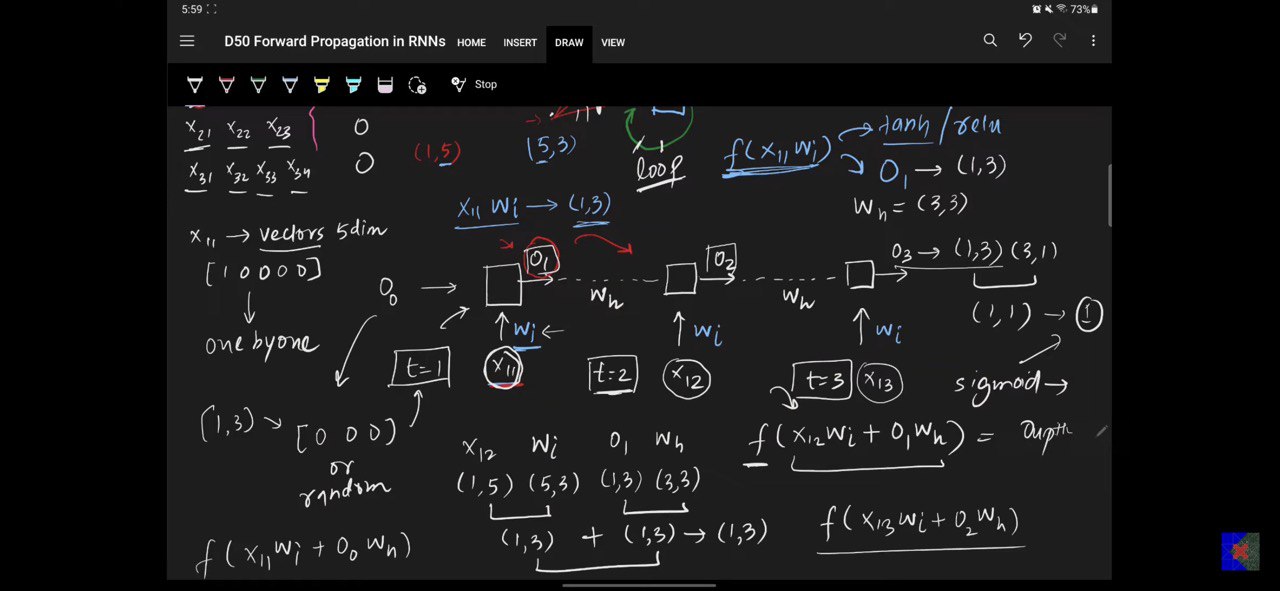 5:59 73%
D50 Forward Propagation in RNNs HOME INSERT DRAW VIEW
Stop
x21 x22 x23 0
x31 x32 x33 x34 0
(1,5) (5,3)
loop
f(x11 wi) → tanh/relu
O1 → (1,3)
wh = (3,3)
x11 wi → (1,3)
x11 → vectors 5dim
[1 0 0 0 0]
one by one
O0 → O1 wh O2 wh O3 → (1,3) (3,1)
(1,1) → 1
wi ← wi wi
t=1 x11 t=2 x12 t=3 x13
sigmoid →
(1,3) → [0 0 0]
or
random
f(x11 wi + O0 wh)
x12 wi O1 wh
(1,5) (5,3) (1,3) (3,3)
(1,3) + (1,3) → (1,3)
f(x12 wi + O1 wh) =
f(x13 wi + O2 wh)